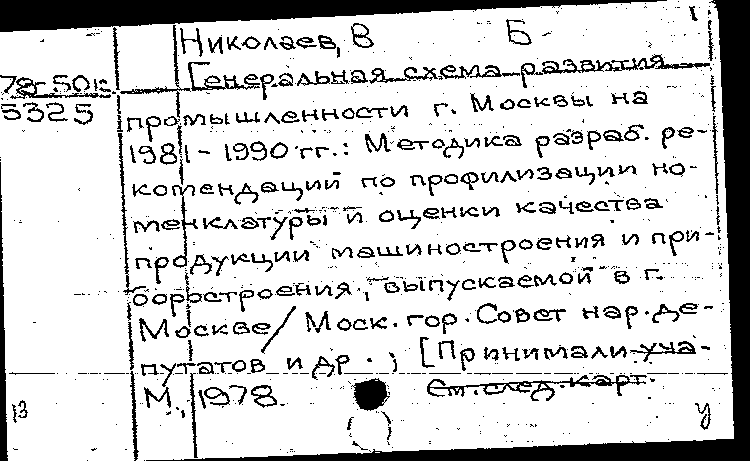 Николаев, В Б- 1
78-50к Генеральная схема развития
5325 промышленности г. Москвы на
1981-1990 гг.: Методика разраб. ре-
комендаций по профилизации но-
менклатуры и оценки качества
продукции машиностроения и при-
боростроения, выпускаемой в г.
Москве / Моск. гор. Совет нар. де-
путатов и др.; [Принимали уча-
М., 1978. См. след. карт.
13 у